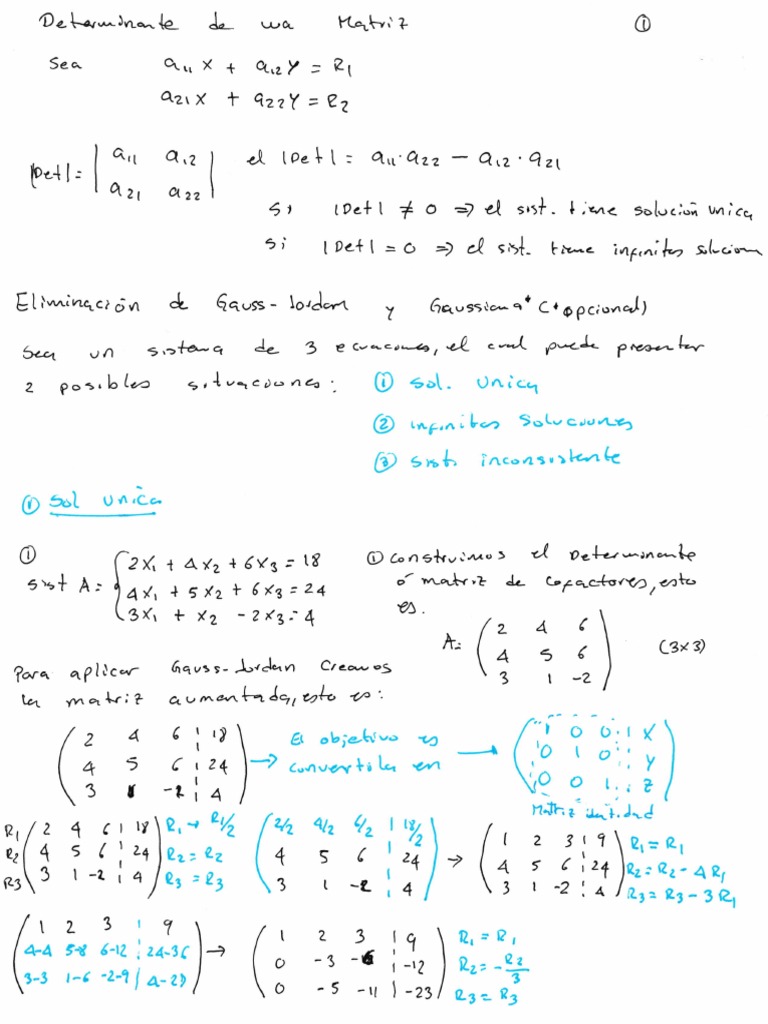 Determinante de una Matriz ①
Sea a11 X + a12 Y = R1
a21 X + a22 Y = R2
|Det| = | a11 a12 | el |Det| = a11·a22 − a12·a21
| a21 a22 |
Si |Det| ≠ 0 => el sist. tiene solución unica
si |Det| = 0 => el sist. tiene infinites solucion
Eliminación de Gauss-Jordan y Gaussiana* (* opcional)
Sea un sistema de 3 ecuaciones, el cual puede presentar
2 posibles situaciones: ① sol. unica
② infinites soluciones
③ sist. inconsistente
① Sol unica
①
sist A = { 2X1 + 4X2 + 6X3 = 18
4X1 + 5X2 + 6X3 = 24
3X1 + X2 − 2X3 = 4
① Construimos el Determinante
ó matriz de cofactores, esto
es.
A: ( 2 4 6 ) (3x3)
( 4 5 6 )
( 3 1 -2 )
Para aplicar Gauss-Jordan Creamos
la matriz aumentada, esto es:
( 2 4 6 | 18 ) → El objetivo es → ( 1 0 0 | X )
( 4 5 6 | 24 ) convertila en ( 0 1 0 | Y )
( 3 1 -2 | 4 ) ( 0 0 1 | Z )
Matriz identidad
R1 ( 2 4 6 | 18 ) R1 → R1/2 ( 2/2 4/2 6/2 | 18/2 ) → ( 1 2 3 | 9 ) R1 = R1
R2 ( 4 5 6 | 24 ) R2 = R2 ( 4 5 6 | 24 ) ( 4 5 6 | 24 ) R2 = R2 − 4R1
R3 ( 3 1 -2 | 4 ) R3 = R3 ( 3 1 -2 | 4 ) ( 3 1 -2 | 4 ) R3 = R3 − 3R1
( 1 2 3 | 9 ) → ( 1 2 3 | 9 ) R1 = R1
( 4-4 5-8 6-12 | 24-36 ) ( 0 -3 -6 | -12 ) R2 = -R2/3
( 3-3 1-6 -2-9 | 4-27 ) ( 0 -5 -11 | -23 ) R3 = R3